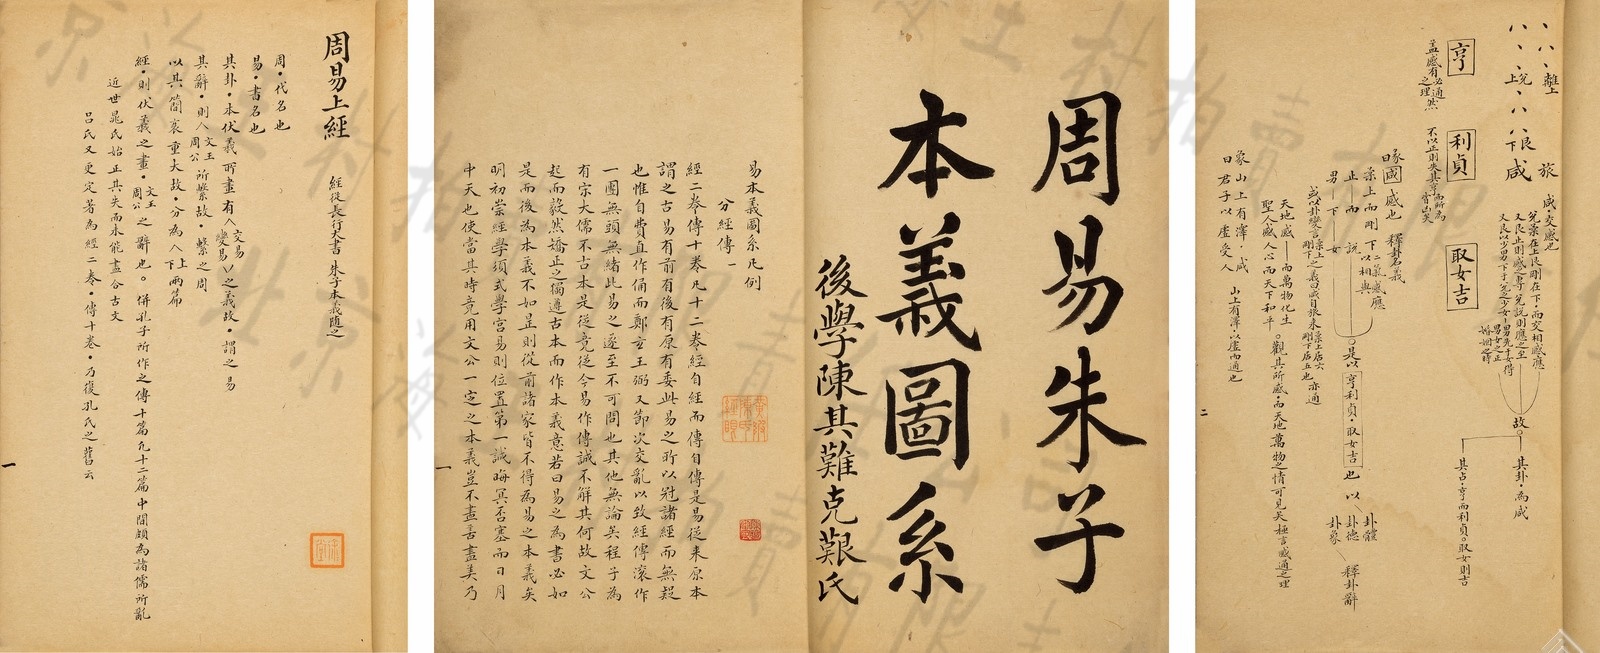 周易上經
經從長行大書 朱子本義隨之
周·代名也
易·書名也
其卦·本伏羲所畫有交易變易之義故·謂之易
其辭·則文王周公所繫故·繫之周
以其簡袠重大故·分為上下兩篇
經·則伏羲之畫·文王周公之辭也。併孔子所作之傳十篇凡十二篇中間頗為諸儒所亂
近世晁氏始正其失而未能盡合古文
呂氏又更定著為經二卷·傳十卷·乃復孔氏之舊云
一
周易朱子
本義圖系
後學陳其難克艱氏
易本義圖系凡例
分經傳一
經二卷傳十卷凡十二卷經自經而傳自傳是易從來原本
謂之古易有前有後有原有委此易之所以冠諸經而無疑
也惟自費直作俑而鄭玄王弼又節次交亂以致經傳滾作
一團無頭無緒此易之遂至不可問也其他無論矣程子為
有宗大儒不古本是從竟從今易作傳誠不解其何故文公
起而毅然矯正之獨遵古本而作本義意若曰易之為書必如
是而後為本義不如是則從前諸家皆不得為易之本義矣
明初崇經學須式學宮易則位置第一誠晦冥否塞而日月
中天也使當其時竟用文公一定之本義豈不盡善盡美乃
一
離上
艮下 旅
兌上
艮下 咸
咸·交感也
兌柔在上艮剛在下·而交相感應
又艮止則感之專兌說則應之至
又艮以少男下于兌之少女
男先于女得
男女之正
婚姻之時
故
其卦·為咸
其占·亨而利貞。取女則吉
亨
蓋感有必通
之理
然
利貞
不以正則失其亨而所為
皆凶矣
取女吉
彖曰咸感也 釋卦名義
柔上而剛下二氣感應以相與
止而說
男下女
是以亨利貞·取女吉也
以
卦體
卦德
卦象
釋卦辭
天地感 而萬物化生
聖人感人心而天下和平
。觀其所感·而天地萬物之情可見矣極言感通之理
象曰山上有澤·咸
君子以虛受人
山上有澤·以虛而通也
二